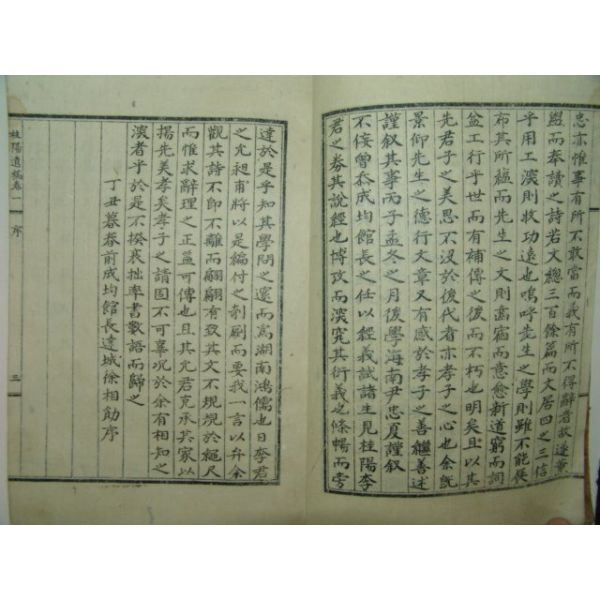 忠亦惟事有所不敢當而義有所不得辭者故遂葉
盥而奉讚之詩若文總三百餘篇而文居四之三信
乎用工深則收功遠也嗚呼先生之學則雖不能侵
布其所蘊而先生之文則寡宿而意愈新道窮而詞
益工行乎世而有補傳之後而不朽也明矣且以其
先君子之美思不汲於後代者亦孝子之心也余旣
景仰先生之德行文章又有感於孝子之善繼善述
謹叙其事丙子孟冬之月後學海南尹忠夏謹叙
不佞曾忝成均館長之任以經義試諸生見桂陽李
君之券其說經也博攷而深究其衍義也條暢而旁
達於是乎知其學問之邃而爲湖南鴻儒也日李君
之允昶甫將以是編付之剞劂而要我一言以弁余
觀其詩不卽不離而翩翩有致其文不規規於繩尺
而惟求辭理之正益可傳也且其允君克承其家以
揚先美孝矣孝子之請固不可辜况於余有相知之
深者乎於是不揆裒拙率書數語而歸之
丁丑暮春前成均館長達城徐相勛序
桂陽遺稿卷一
序
三